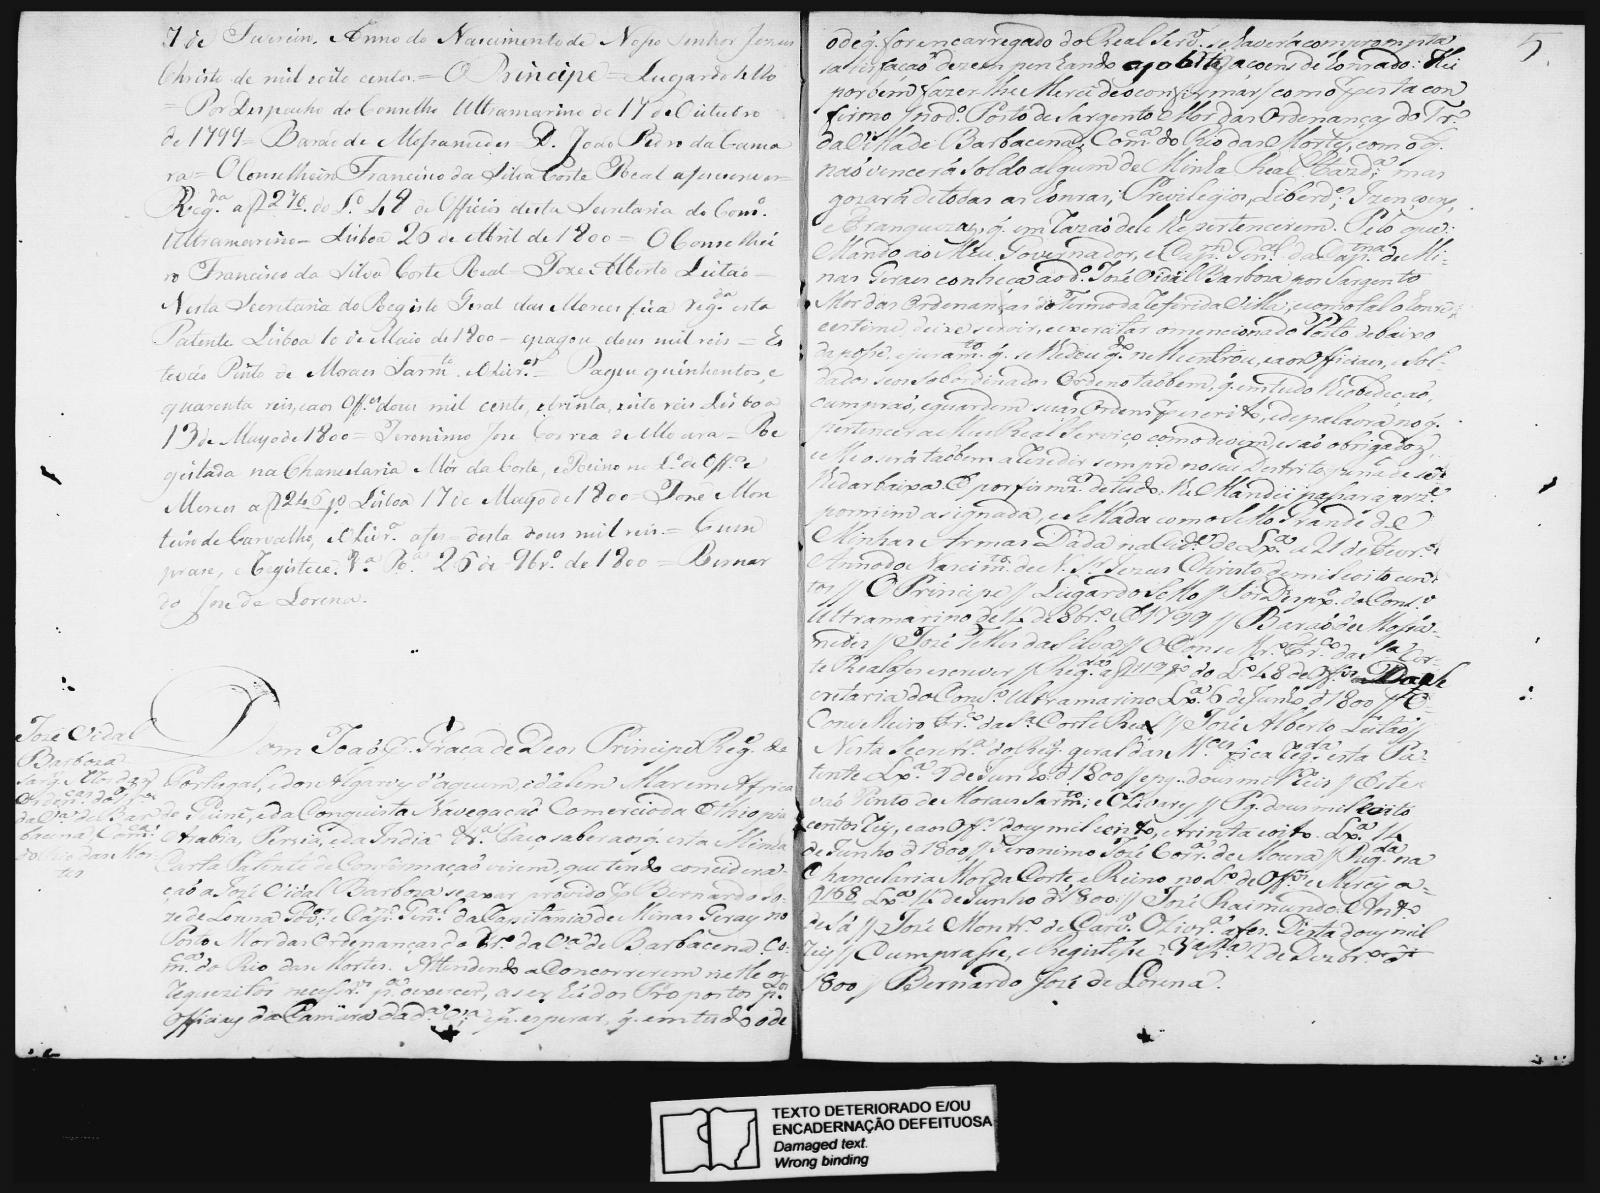 7 de Janeiro. Anno do Nascimento de Nosso Senhor Jezus
Christo de mil oito centos = O Principe = Lugar do Sello
= Por Despacho do Conselho Ultramarino de 17 de Outubro
de 1799 = Barão de Mossamedes = D. João Pedro da Cama
ra = O Conselheiro Francisco da Silva Corte Real a fes escrever =
Reg.da a f 270. do L.o 48 de Officios desta Secretaria do Cons.o
Ultramarino = Lisboa 26 de Abril de 1800 = O Conselhei
ro Francisco da Silva Corte Real = Joze Alberto Leitão =
Nesta Secretaria do Registo Geral das Merces fica reg.da esta
Patente Lisboa 10 de Maio de 1800 = epagou dous mil reis = Es
tevão Pinto de Moraes Sarm.to = Pagou quinhentos, e
quarenta reis, eaos Off.es dous mil cento, etrinta, eoito reis Lisboa
13 de Mayo de 1800 = Jeronimo Joze Correa de Moura = Re
gistada na Chancelaria Mór da Corte, e Reino no L.o de Off.os e
Merces a f 246 Lisboa 17 de Mayo de 1800 = Joze Mon
teiro de Carvalho, desta dous mil reis. = Cum
prase, e Registese. V.a R.a 26 de 9br.o de 1800 = Bernar
do Joze de Lorena.
Joze Vidal
Barboza
Sarg. Mor das
Orden.cas do
da V.a de Bar
bacena Com.ca
do Rio das Mor
tes
Dom João P. Graça de Deos Principe Reg.e de
Portugal, e dos Algarves d'aquem, e dalem Mar em Africa
de Guiné, e da Conquista Navegação Comercio da Ethiopia
Arabia, Persia, e da India &.a Faço saber aos q. esta Minha
Carta Patente de Confirmação virem, que tendo considera-
ção a Joze Vidal Barboza se axar provido p. Bernardo Jo-
ze de Lorena Gov.or, e Cap.m Gen.al da Capitania de Minas Geraes no
Posto Mor das Ordenanças do Tr.o da V.a de Barbacena Co-
m.ca do Rio das Mortes. Attendendo a Concorrerem nelle os
requezitos necessr.os p.a o exercer, a ser hũ dos Propostos p.los
Officiaes da Camara da d.a V.a esperar, q. em tudo o de
5.
o de q. for encarregado do Real Serv.o se haverá com prompta
satisfação
porbem fazer lhe Merce de o confirmar, como por esta con
firmo no d.o Posto de Sargento Mor das Ordenanças do Tr.o
da Villa de Barbacena, Com.ca do Rio das Mortes, com o q.
não vencerá soldo algum de Minha Real Fazd.a mas
gozará de todas as honras, Privilegios, Liberd.es, Izençoens,
e Franquezas, q. em razão delle lhe pertencerem. Pelo que
Mando ao Meu Governador, e Cap.m Gen.al da Cap.nia de Mi-
nas Geraes conheça ao d.o Joze Vidal Barboza por Sargento
Mor das Ordenanças do Termo da referida Villa, e como tal o honre
e estime, deixe servir, e exercitar o mencionado Posto debaixo
da posse, e juram.to q. se lhe deu q.do nelle entrou, e aos Officiaes, e Sol-
dados seus Subordinados Ordeno tãobem q. em tudo lhe obedeção,
cumprão, e guardem suas Ordens por escrito, e de palavra no q.
pertencer a Meu Real Serviço como devem, e são obrigados,
e elle será tãobem a rezedir sempre no seu Destrito pena de se
lhe dar baixa. E por firmeza de tudo lhe Mandei passar a prez.e
por mim asignada, e sellada com o Sello Grande de
Minhas Armas Dada na Cid.e de Lx.a a 21 de Fevr.o
Anno do Nascim.to de N. S.r Jezus Christo de mil e oito cen
tos // O Principe // Lugar do Sello // Por Desp.o do Cons.o
Ultramarino de 17 de 8br.o de 1799 // Barão de Mossa-
medes // Joze Telles da Silva // O Conselhr.o Fr.co da S.a Cor-
te Real a fes escrever // Reg.da a f do L.o 48 de Off.os Da Se
cretaria do Cons.o Ultramarino Lx.a 6 de Junho d 1800 // O
Conselheiro Fr.co da S.a Corte Real // Joze Alberto Leitão //
Nesta Secretr.a do Reg. geral das M.ces fica reg.da esta Pa-
tente Lx.a 9 de Junho d 1800 // e pg. dous mil reis // Este-
vão Pinto de Moraes Sarm.to // Pg. dous mil e oito
centos reis, e aos Off.es dous mil cento, e trinta e oito. Lx.a
de Junho d 1800 // Jeronimo Joze Corr.a de Moura // Reg.da na
Chancelaria Mor da Corte e Reino no L.o de Off.os e Merces a
f 168 Lx.a de Junho d 1800 // Joze Raimundo
de Sá // Joze Montr.o de Carv.o a fes. Desta dous mil
reis // Cumprasse, e Registese V.a R.a 2 de Dezbr.o de
1800 // Bernardo Joze de Lorena.
TEXTO DETERIORADO E/OU
ENCADERNAÇÃO DEFEITUOSA
Damaged text.
Wrong binding